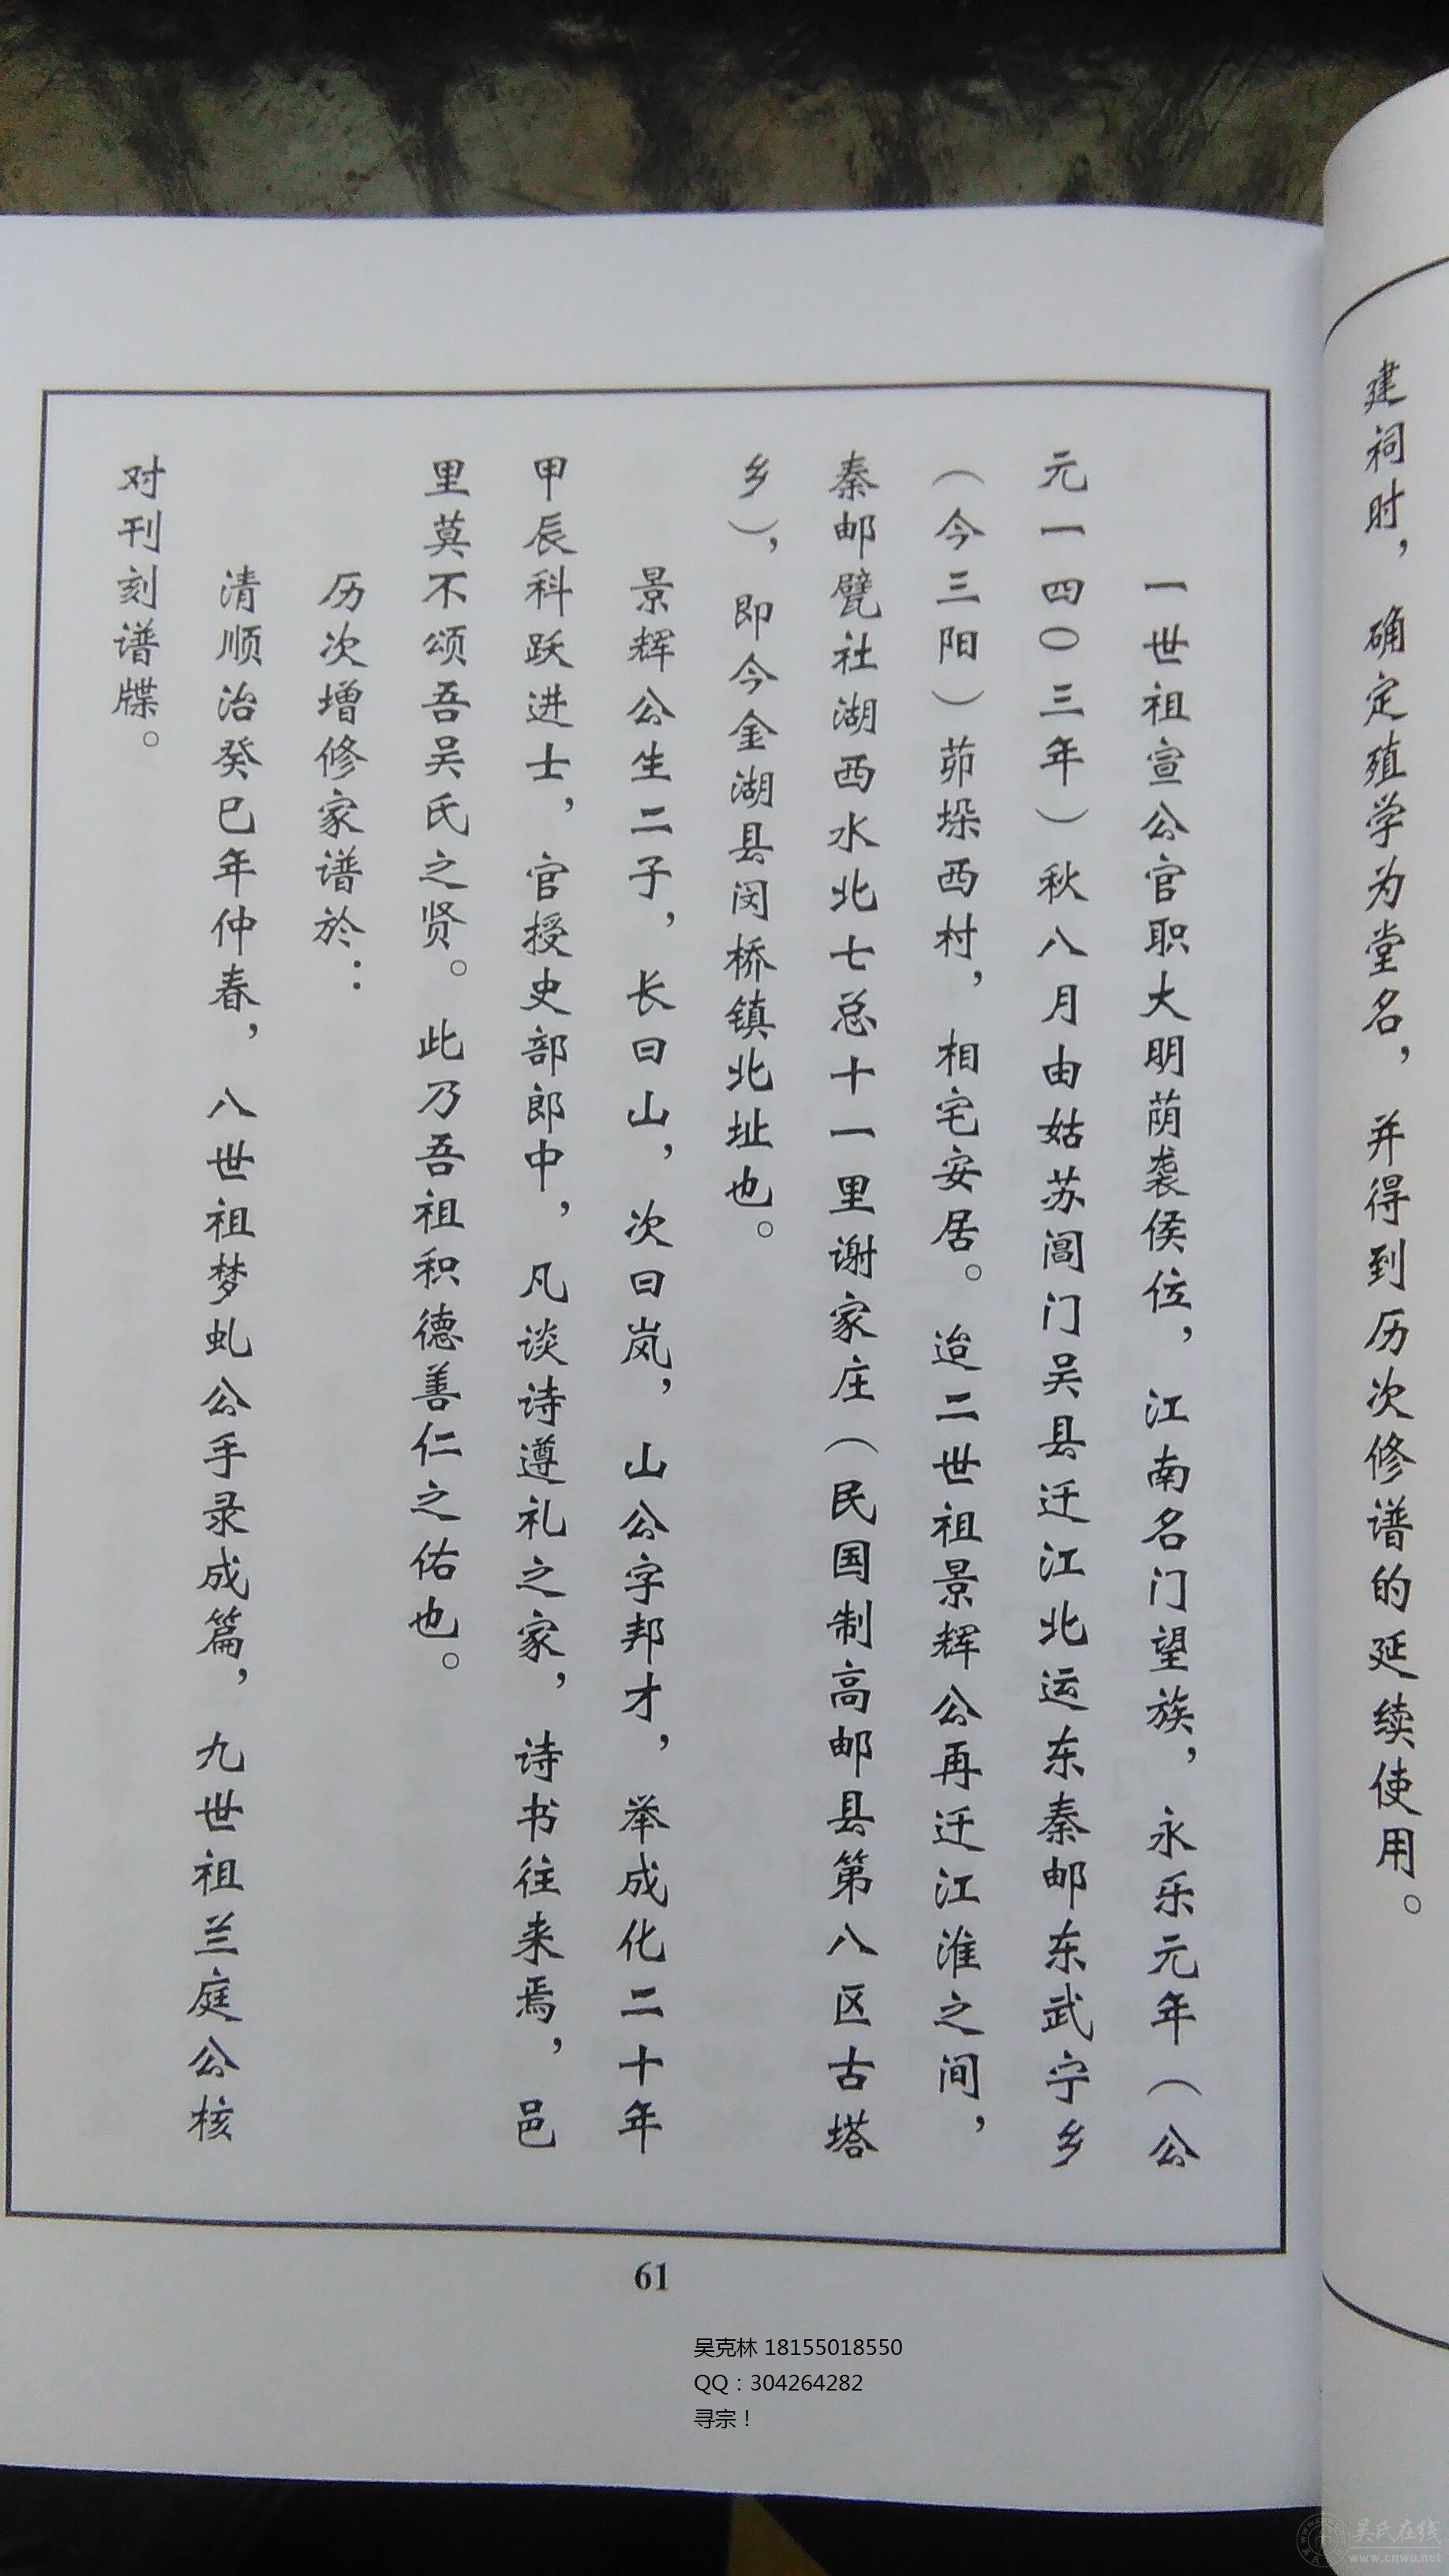 建祠时，确定殖学为堂名，并得到历次修谱的延续使用。
一世祖宣公官职大明荫袭侯位，江南名门望族，永乐元年（公
元一四〇三年）秋八月由姑苏阊门吴县迁江北运东秦邮东武宁乡
（今三阳）茆垛西村，相宅安居。迨二世祖景辉公再迁江淮之间，
秦邮甓社湖西水北七总十一里谢家庄（民国制高邮县第八区古塔
乡），即今金湖县闵桥镇北址也。
景辉公生二子，长曰山，次曰岚，山公字邦才，举成化二十年
甲辰科跃进士，官授史部郎中，凡谈诗遵礼之家，诗书往来焉，邑
里莫不颂吾吴氏之贤。此乃吾祖积德善仁之佑也。
历次增修家谱於：
清顺治癸巳年仲春，八世祖梦虬公手录成篇，九世祖兰庭公核
对刊刻谱牒。
61
吴克林 18155018550
QQ：304264282
寻宗！
吴氏在线
www.cnwu.net